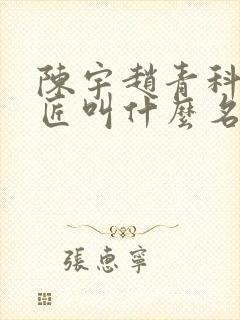 陳宇趙青科
匠叫什麼名
張惠寧